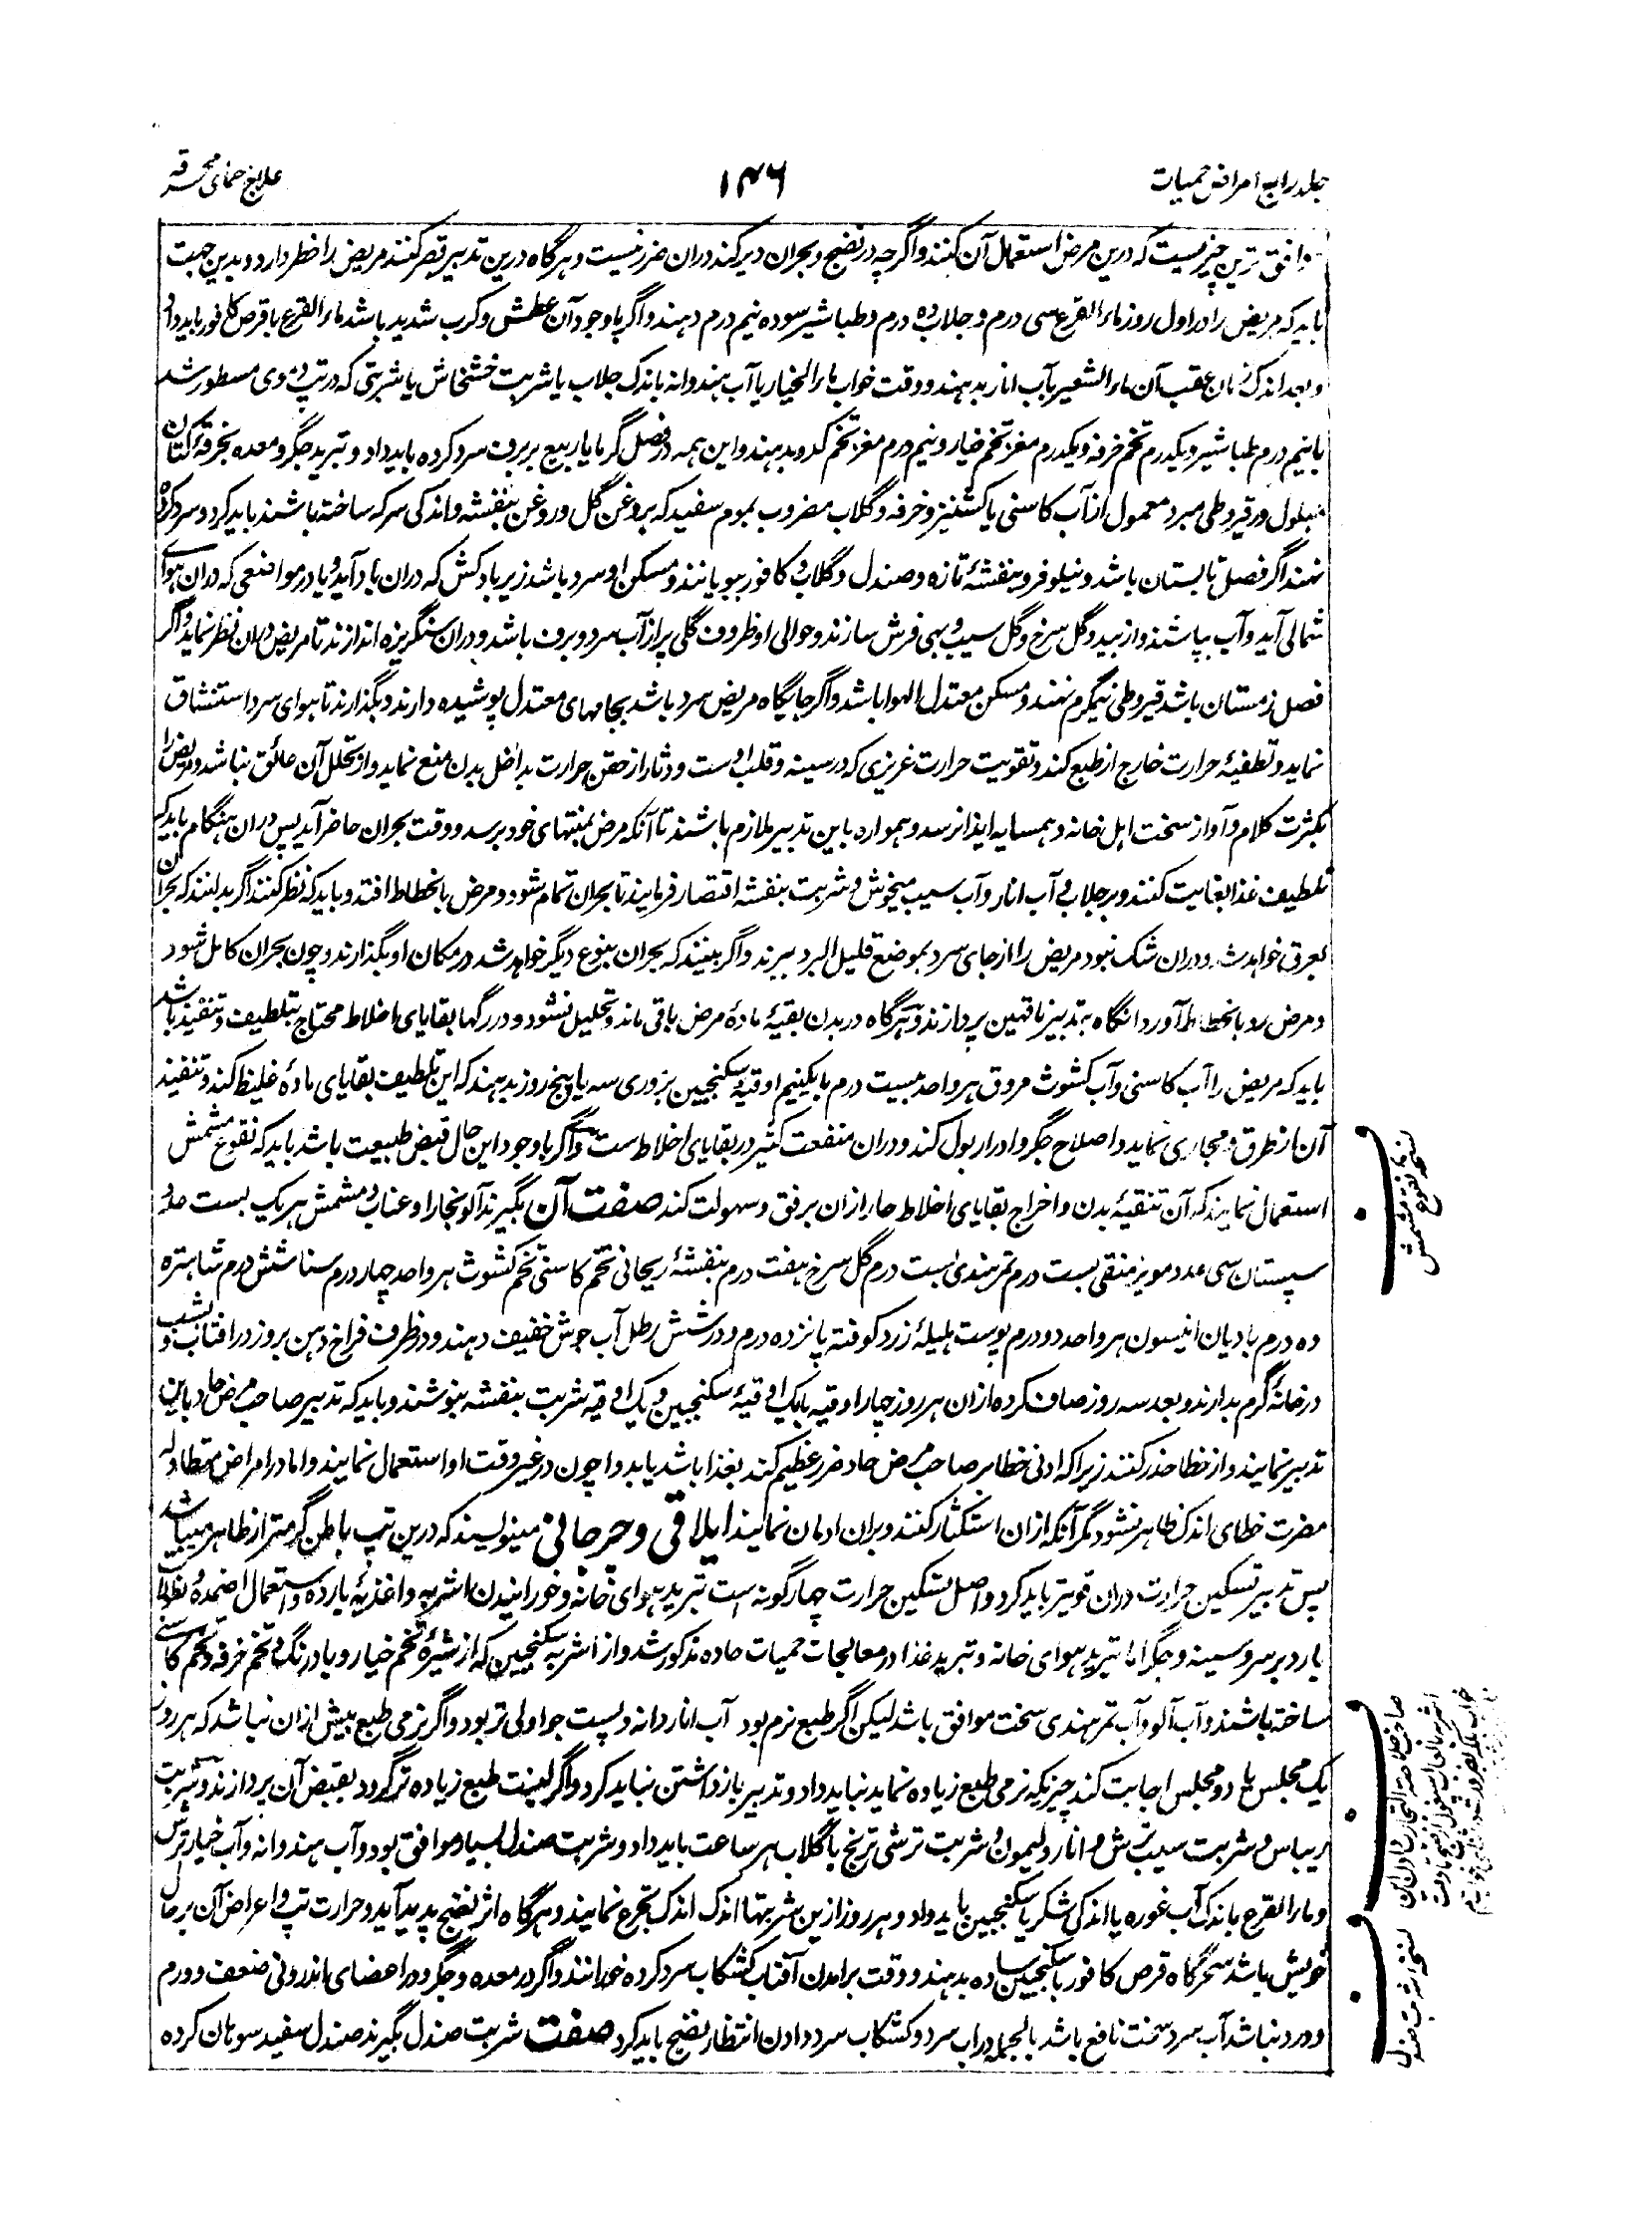 جلد رابع امراض حمیات
۱۴۶
علاج حمای محرقه
وافق ترین چیزیست که درین مرض استعمال آن کنند و اگرچه در نضج و بحران دیر کند دران ضرر نیست و هرگاه درین تدبیر قصر کنند مریض را خطر دارد و بدین جهت
باید که مریض را در اول روز ماء القرع سی درم و جلاب ده درم و طباشیر سوده نیم درم دهند و اگر با وجود آن عطش و کرب شدید باشد ماء القرع با قرص کافور باید داد
و بعد اندک زمان عقب آن ماء الشعیر بآب انار بدهند و وقت خواب ماء الخیار یا آب هندوانه باندک جلاب یا شربت خشخاش یا شربتی که در تپ دموی مسطور شد
با نیم درم طباشیر و یکدرم تخم خرفه و یکدرم مغز تخم خیار و نیم درم مغز تخم کدو بدهند و این همه در فصل گرما یا ربیع بر برف سرد کرده باید داد و تبرید جگر و معده بخرقه کتان
مبلول در قیروطی مبرد معمول از آب کاسنی یا کشنیز و خرفه و گلاب مضروب بموم سفید که بروغن گل و روغن بنفشه و اندکی سرکه ساخته باشند باید کرد و سرد کرده
نهند اگر فصل تابستان باشد و نیلوفر و بنفشهٔ تازه و صندل و گلاب و کافور ببویانند و مسکن او سرد باشد زیر بادکش که دران باد آید و یا در مواضعی که دران هوای
شمالی آید و آب بپاشند و از بید و گل سرخ و گل سیب و بهی فرش سازند و حوالی او ظروف گلی پر از آب سرد و برف باشد و دران سنگریزه اندازند تا مریض دران نظر نماید و اگر
فصل زمستان باشد قیروطی نیمگرم نهند و مسکن معتدل الهوا باشد و اگر جایگاه مریض سرد باشد بجامهای معتدل پوشیده دارند و بگذارند تا هوای سرد استنشاق
نماید و تطفیهٔ حرارت خارج از طبع کند و تقویت حرارت غریزی که در سینه و قلب اوست و دثار از حقن حرارت بداخل بدن منع نماید و از تحلل آن عائق نباشد و مریض را
بکثرت کلام و آواز سخت اهل خانه و همسایه ایذا نرسد و همواره باین تدبیر ملازم باشند تا آنکه مرض بمنتهای خود برسد و وقت بحران حاضر آید پس دران هنگام باید که
تلطیف غذا بغایت کنند و بر جلاب و آب انار و آب سیب میخوش و شربت بنفشه اقتصار فرمایند تا بحران تمام شود و مرض بانحطاط افتد و باید که نظر کنند اگر بدانند که بحران
بعرق خواهد شد و دران شک نبود مریض را از جای سرد بموضع قلیل البرد ببرند و اگر بینند که بحران بنوع دیگر خواهد شد در مکان او بگذارند و چون بحران کامل شود
و مرض رو بانحطاط آورد انگاه بتدبیر ناقهین پردازند و هرگاه در بدن بقیهٔ مادهٔ مرض باقی ماند و تحلیل نشود و در رگها بقایای اخلاط محتاج بتلطیف و تنفیذ باشد
باید که مریض را آب کاسنی و آب کشوث مروق هر واحد بیست درم با یکنیم اوقیهٔ سکنجبین بزوری سه یا پنج روز بدهند که این تلطیف بقایای مادهٔ غلیظ کند و تنفیذ
آن از طرق و مجاری نماید و اصلاح جگر و ادرار بول کند و دران منفعت کثیر در بقایای اخلاط ست و اگر با وجود این حال قبض طبیعت باشد باید که نقوع مشمش
استعمال نمایند که آن تنقیهٔ بدن و اخراج بقایای اخلاط حار ازان برفق و سهولت کند صفت آن بگیرند آلوبخارا و عناب و مشمش هر یک بست عدد
سپستان سی عدد مویز منقی بست درم تمرهندی بست درم گل سرخ هفت درم بنفشهٔ ریحانی تخم کاسنی تخم کشوث هر واحد چهار درم سنا شش درم شاهتره
ده درم بادیان انیسون هر واحد دو درم پوست هلیلهٔ زرد کوفته پانزده درم و در شش رطل آب جوش خفیف دهند و در ظرف فراخ دهن بروز در آفتاب و بشب
در خانهٔ گرم بدارند و بعد سه روز صاف کرده ازان هر روز چهار اوقیه با یک اوقیهٔ سکنجبین و یک اوقیه شربت بنفشه بنوشند و باید که تدبیر صاحب مرض حاد باین
تدبیر نمایند و از خطا حذر کنند زیرا که ادنی خطا بر صاحب مرض حاد ضرر عظیم کند بغذا باشد یا بدوا چون در غیر وقت او استعمال نمایند و اما در امراض متطاوله
مضرت خطای اندک ظاهر نشود مگر آنکه ازان استکثار کنند و بران ادمان نمایند ایلاقی و جرجانی مینویسند که درین تپ باطن گرمتر از ظاهر میباشد
پس تدبیر تسکین حرارت دران قویتر باید کرد و اصل تسکین حرارت چهار گونه است تبرید هوای خانه و خورانیدن اشربه و اغذیهٔ بارده و استعمال اضمدهٔ
بارد بر سر و سینه و جگر اما تبرید هوای خانه و تبرید غذا در معالجات حمیات حاده مذکور شد و از اشربه سکنجبین که از شیرهٔ تخم خیار و بادرنگ و تخم خرفه و تخم کاسنی
ساخته باشند و آب آلو و آب تمرهندی سخت موافق باشد لیکن اگر طبع نرم بود آب اناردانه و پست جو اولی تر بود و اگر نرمی طبع بیش ازان نباشد که هر روز
یک مجلس یا دو مجلس اجابت کند چیزیکه نرمی طبع زیاده نماید نباید داد و تدبیر بازداشتن نباید کرد و اگر لینت طبع زیاده تر گردد بقبض آن پردازند و شربت
ریباس و شربت سیب ترش و انار و لیمون و شربت ترشی ترنج با گلاب هر ساعت باید داد و شربت صندل بسیار موافق بود و آب هندوانه و آب خیار ترش
و ماء القرع باندک آب غوره یا اندکی شکر یا سکنجبین باید داد و هر روز ازین شربتها اندک اندک تجرع نمایند و هرگاه اثر نضج پدید آید و حرارت تپ و اعراض آن بر حال
خویش باشد سحرگاه قرص کافور با سکنجبین ساده بدهند و وقت برامدن آفتاب کشکاب سرد کرده خورانند و اگر در معده و جگر و در اعضای اندرونی ضعف و ورم
و درد نباشد آب سرد سخت نافع باشد بالجمله در آب سرد و کشکاب سرد دادن انتظار نضج باید کرد صفت شربت صندل بگیرند صندل سفید سوهان کرده
نسخه نقوع
مشمش
نسخه شربت صندل